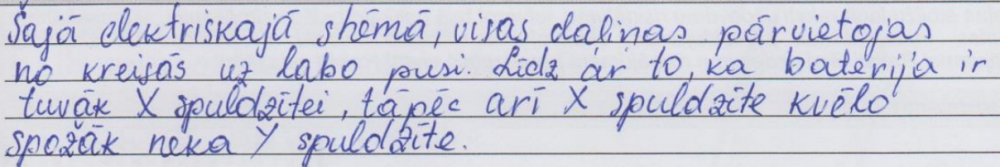 Šajā elektriskajā shēmā, visas daļiņas pārvietojas
no kreisās uz labo pusi. Līdz ar to, ka baterija ir
tuvāk X spuldzītei, tāpēc arī X spuldzīte kvēlo
spožāk neka Y spuldzīte.